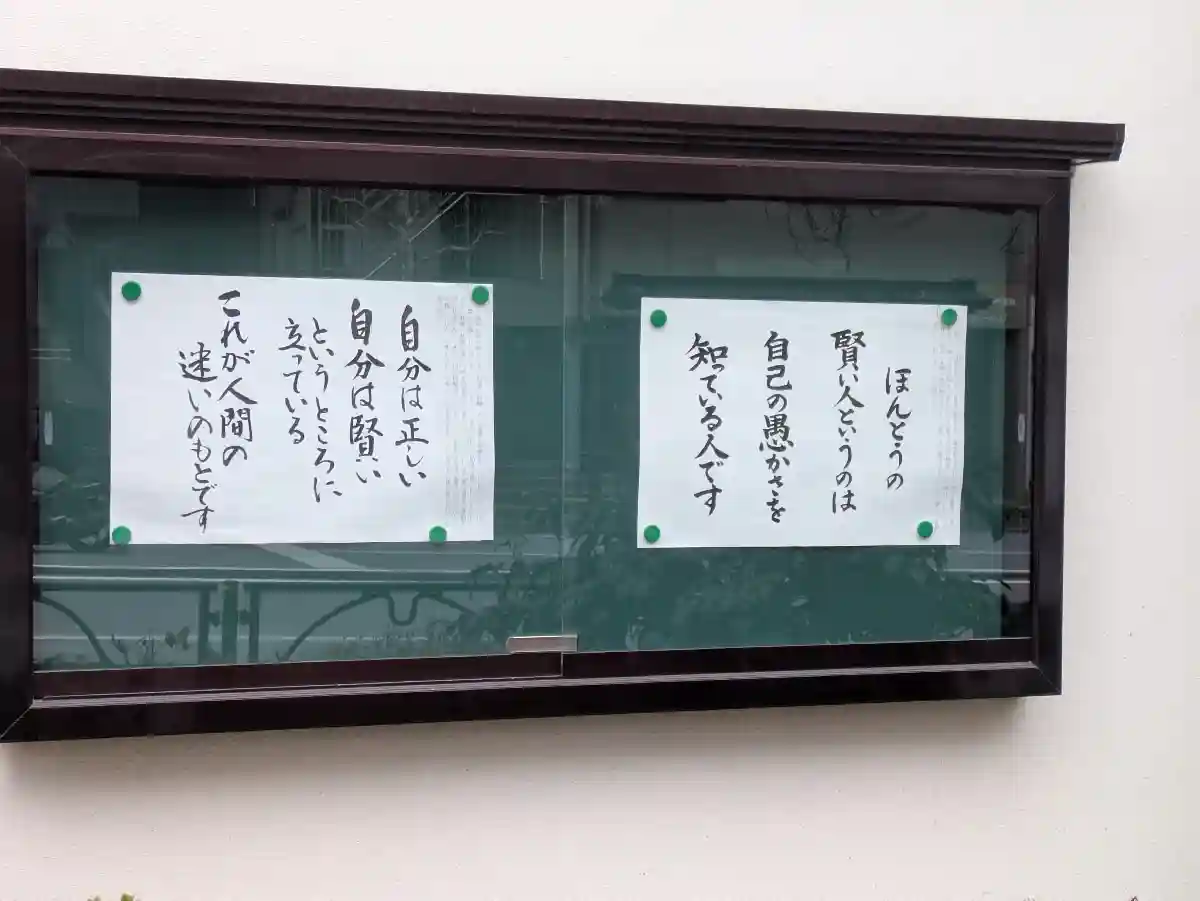 ほんとうの
賢い人というのは
自己の愚かさを
知っている人です
自分は正しい
自分は賢い
というところに
立っている
これが人間の
迷いのもとです